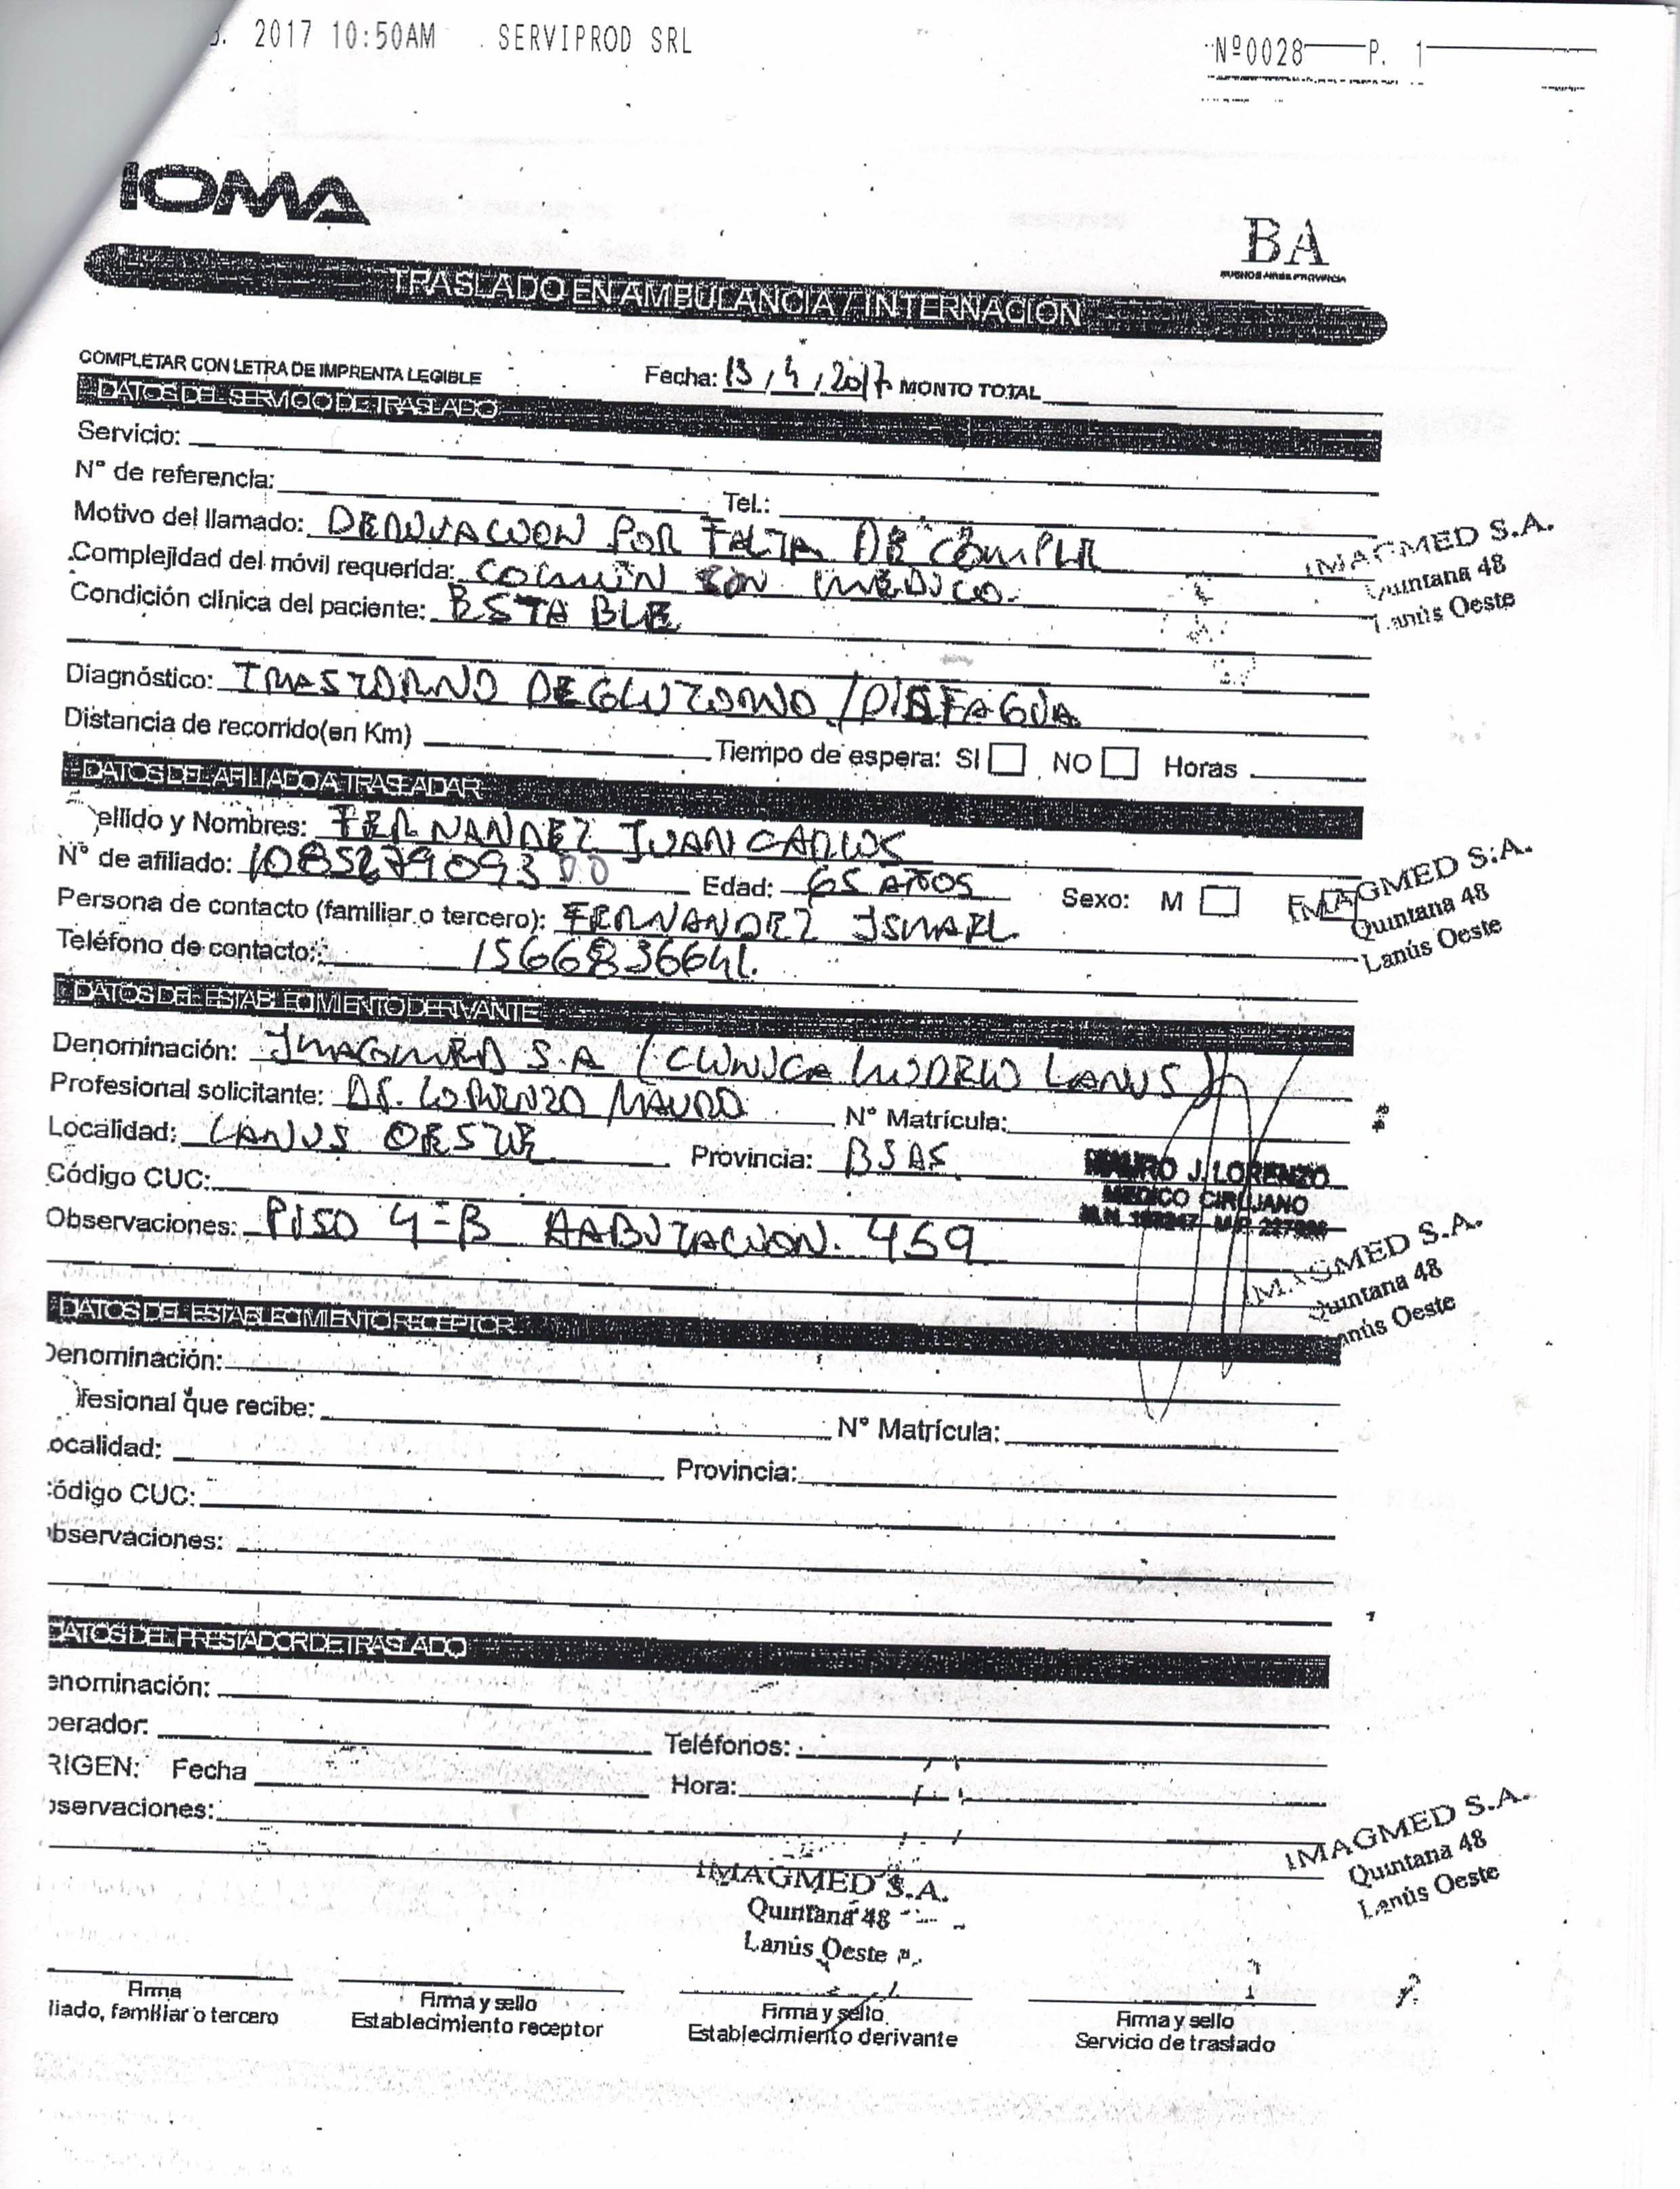 2017 10:50AM . SERVIPROD SRL
Nº0028 P. 1
IOMA
BA
BUENOS AIRES PROVINCIA
TRASLADO EN AMBULANCIA / INTERNACIÓN
COMPLETAR CON LETRA DE IMPRENTA LEGIBLE Fecha: 13/4/2017 MONTO TOTAL
DATOS DEL SERVICIO DE TRASLADO
Servicio:
N° de referencia: Tel.:
Motivo del llamado: DERIVACION POR FALTA DE COMPLR
Complejidad del móvil requerida: COMUN CON MEDICO.
Condición clínica del paciente: ESTABLE
IMAGMED S.A.
Quintana 48
Lanús Oeste
Diagnóstico: TRASTORNO DEGLUTORIO / DISFAGIA
Distancia de recorrido(en Km) Tiempo de espera: SI NO Horas
DATOS DEL AFILIADO A TRASLADAR
ellido y Nombres: FERNANDEZ JUAN CARLOS
N° de afiliado: 108527909300 Edad: 65 AÑOS Sexo: M F
Persona de contacto (familiar o tercero): FERNANDEZ ISMAEL
Teléfono de contacto: 1566836641.
IMAGMED S.A.
Quintana 48
Lanús Oeste
DATOS DEL ESTABLECIMIENTO DERIVANTE
Denominación: IMAGMED S.A (CLINICA MODELO LANUS)
Profesional solicitante: DR. LORENZO MAURO N° Matrícula:
Localidad: LANUS OESTE Provincia: BSAS
MAURO J. LORENZO
MEDICO CIRUJANO
Código CUC:
Observaciones: PISO 4-B HABITACION. 459
IMAGMED S.A.
Quintana 48
Lanús Oeste
DATOS DEL ESTABLECIMIENTO RECEPTOR
Denominación:
fesional que recibe: N° Matrícula:
ocalidad: Provincia:
ódigo CUC:
bservaciones:
DATOS DEL PRESTADOR DE TRASLADO
enominación:
perador: Teléfonos:
RIGEN: Fecha Hora:
servaciones:
IMAGMED S.A.
Quintana 48
Lanús Oeste
IMAGMED S.A.
Quintana 48
Lanús Oeste
Firma Firma y sello Firma y sello Firma y sello
liado, familiar o tercero Establecimiento receptor Establecimiento derivante Servicio de traslado